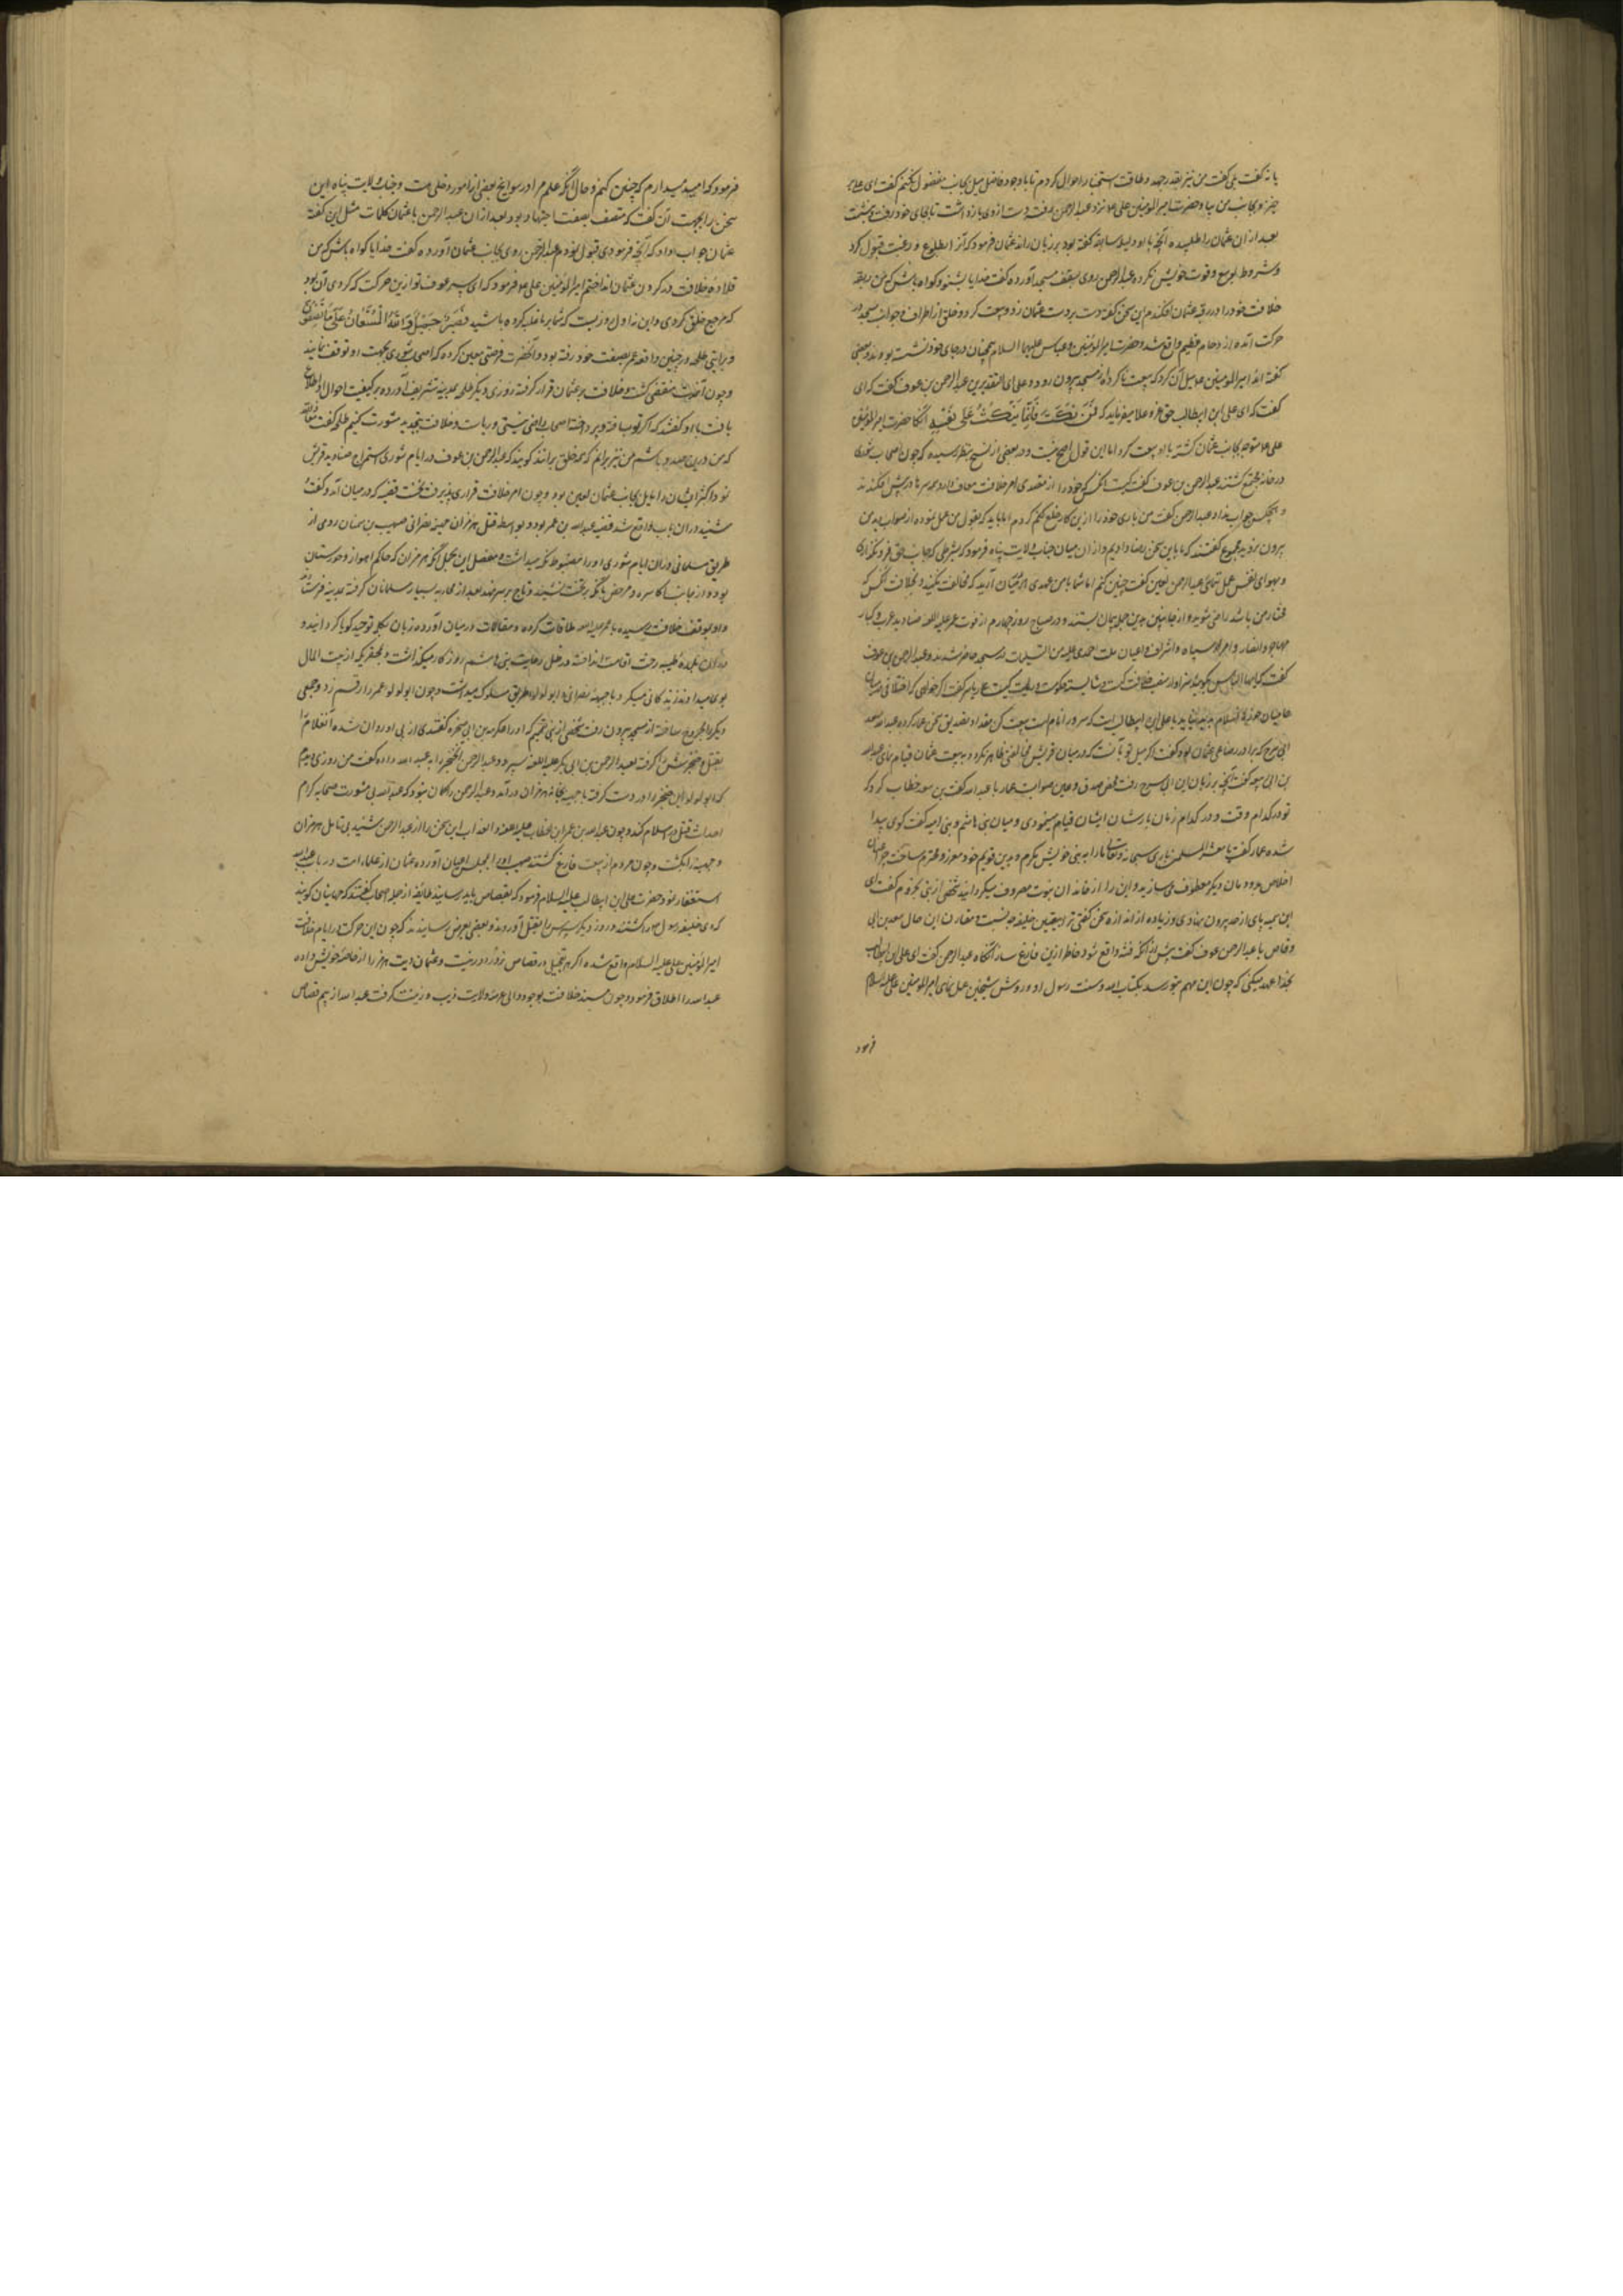 یا نه گفت بلی گفت من نیز بقدر جهد و طاقت استخبار احوال کردم تا با وجود فاضل میل بجانب مفضول نکنم گفت ای
خیز و بجانب من بیا و حضرت امیر المومنین علی نزد عبد الرحمن رفت دست از وی بازداشت تا بجای خود رفت و بنشست
بعد از ان عثمان را طلبیده آنچه با او گفته بود بر زبان راند عثمان فرمود که آنرا بطوع و رغبت قبول کرد
و شروط بوسع و قوت خویش نکرد و عبد الرحمن روی بسقف مسجد آورده گفت خدایا بشنو و کواه باش که من ربقه
خلافت خود را در رقبه عثمان افکندم این سخن گفته دست بر دست عثمان زد و بیعت کرد و خلق از اطراف و جوانب مسجد در
حرکت آمده ازدحام عظیم واقع شد و حضرت امیر المومنین و عباس علیهما السلام همچنان در جای خود نشسته بودند و بعضی
گفته اند امیر المومنین میل آن کرد که بیعت ناکرده از مسجد بیرون رود و علی ای التقدیرین عبد الرحمن بن عوف گفت که ای
گفت که ای علی ابن ابیطالب حق عز و علا میفرماید که فمن نکث فانما ینکث علی نفسه انگاه حضرت امیر المومنین
علی متوجه بجانب عثمان گشته با او بیعت کرد اما این قول اصح نیست و در بعضی از نسخ بنظر رسیده که چون اصحاب شوری
در خانه مجتمع گشتند عبد الرحمن بن عوف گفت کیست انکس که خود را از متصدی امر خلافت معاف دارد همه سرها در پیش افکندند
و هیچکس جواب نداد عبد الرحمن گفت من باری خود را ازین کار خلع کردم اما باید که بقول من عمل نموده از صواب دید من
بیرون نروید مجموع گفتند که ما باین سخن رضا دادیم و از ان میان جناب ولایت پناه فرمود که بشرطی که جانب حق فرو نگذاری
و بهوای نفس عمل ننمائی عبد الرحمن گفت چنین کنم اما شما با من عهدی در میان آرید که مخالفت نکنید و بخلافت آنکس که
مختار من باشد راضی شوید و از جانبین بدین جمله پیمان بستند و در صباح روز چهارم از فوت عمر صنادید عرب و کبار
مهاجر و انصار و امراء سپاه و اشراف و اعیان ملت احمدی در مسجد حاضر شدند و عبد الرحمن بن عوف
گفت که ایها الناس بگویید سزاوار منصب خلافت کیست و شایسته حکومت و ریاست کیست عمار یاسر گفت اگر خواهی که اختلافی در میان
حامیان حوزه اسلام پدید نیاید با علی ابن ابیطالب که سرور انام است بیعت کن مقداد تصدیق سخن عمار کرده عبد الله سعد
ابی سرح که برادر رضاعی عثمان بود گفت اگر میل تو بآنست که در میان قریش مخالفتی ظاهر نکردد به بیعت عثمان قیام نمای عبد الله
بن ابی گفت آنچه بر زبان ابن ابی سرح رفت محض صدق و عین صوابست عمار با عبد الله گفت بن سعد خطاب کرد که
تو در کدام وقت و در کدام زمان قیام مینمودی و میان بنی هاشم و بنی امیه گفت کوی پیدا
شده عمار گفت یا معشر المسلمین باری سبحانه و تعالی ما را به نبی خویش مکرم و بدین قویم خود معزز و محترم ساخت چرا عنان
اخلاص خود بدیگر معطوف میسازید و این را از خاندان نبوت مصروف میکردانید شخصی از بنی مخزوم گفت ای
ابن سمیه پای از حد بیرون نهادی و زیاده از اندازه سخن گفتی ترا بتعیین خلیفه چه نسبت و مقارن این حال سعد بن ابی
وقاص با عبد الرحمن عوف گفت پیش از آنکه فتنه واقع شود خاطر ازین فارغ ساز آنگاه عبد الرحمن گفت ای علی ابن ابیطالب
بخدا عهد میکنی که چون این مهم بتو رسد بکتاب الله و سنت رسول او و روش شیخین عمل نمای امیر المومنین علی علیه السلام
فرمود
فرمود که امید میدارم که چنین کنم و حال آنکه علم من در سوانح بعضی از امور دخلی هست و جناب ولایت پناه این
سخن را بجهت آن گفت که متصف بصفت اجتهاد بود بعد از ان عبد الرحمن با عثمان کلمات مثل این گفت
عثمان جواب داد که آنچه فرمودی قبول نمودم عبد الرحمن روی بجانب عثمان آورده گفت خدایا کواه باش که من
قلاده خلافت در گردن عثمان انداختم امیر المومنین علی فرمود که ای پسر عوف تو ازین حرکت که کردی آن بود
که مرجع خلق کردی و این نه اول روزیست که شما بر ما غلبه کرده باشید فصبر جمیل والله المستعان علی ما تصفون
و بروایتی طلحه در حین واقعه عمر بضیعت خود رفته بود و آنحضرت فرصتی معین کرده که اصحاب شوری بجهت او توقف نمایند
و چون آنمدت منقضی گشت و خلافت بر عثمان قرار گرفت روزی دیگر طلحه بمدینه تشریف آورده بر کیفیت احوال اطلاع
یافت با او گفتند که اگر تو بساخته و پرداخته اصحاب راضی نیستی در باب خلافت بتجدید مشورت کنیم طلحه گفت معاذ الله
که من درین صدد باشم من نیز برانم که همه خلق برانند گویند که عبد الرحمن بن عوف در ایام شوری استمزاج صنادید قریش
نمود اکثر ایشان را مایل بجانب عثمان تعیین بود و چون امر خلافت قراری پذیرفت نخست قضیه که در میان آمد و گفت
شنید در ان باب واقع شد قضیه عبد الله بن عمر بود و بواسطه قتل هرمزان جفینه نصرانی صهیب بن سنان رومی از
طریق مسلمانی در ان ایام شوری او را مضبوط نگه میداشت و مفصل این مجمل آنکه هرمزان که حاکم اهواز و خوزستان
بود و از جانب اکاسره مرخص بآنکه بر تخت نشیند و تاج بر سر نهد بعد از محاربه بسیار مسلمانان گرفته بمدینه فرستادند
و او بموقف خلافت رسیده با عمر ملاقات کرده و مقالات در میان آورده زبان بکلمه توحید کویا کردانید و
در ان بلده طیبه رحت اقامت انداخته در ظل رعایت بنی هاشم روزگار میگذاشت و بمحقری که از بیت المال
بوی میدادند زندکانی میکرد و با جفینه نصرانی و ابو لولو طریق سلوک میداشت و چون ابو لولو عمر را زخم زد و جمعی
دیگر را مجروح ساخته از مسجد بیرون رفت شخصی از بنی تمیم که او را حکم بن ابی گفتندی از پی او روان شده آنغلام را
بقتل خنجرش گرفته بعبد الرحمن بن ابی بکر سپرد و عبد الرحمن آنخنجر را به عبید الله داده گفت من روزی دیدم
که ابو لولو این خنجر را در دست گرفته با جفینه بخانه هرمزان در آمد و عبد الرحمن را گمان نبود که عبید الله بی مشورت صحابه کرام
احداث قتل در اسلام کند و چون عبد الله بن عمر ابن خطاب این سخن را از عبد الرحمن شنید بی تامل هرمزان
و جفینه را بکشت و چون مردم از بیعت فارغ گشتند صهیب او را بمجلس اعیان آورده عثمان از علماء امت در باب عبد الله
استفسار نمود حضرت علی ابن ابیطالب علیه السلام فرمود که بقصاص باید رسانید طایفه از جمله اصحاب گفتند که جهانیان گویند
که دی خلیفه رسول را کشتند و روز دیگر پسرش را بقتل آوردند و بعضی بعرض رسانیدند که چون این حرکت در ایام خلافت
امیر المومنین علی علیه السلام واقع نشده اگر تعجیل در قصاص نرود اولی است و عثمان دیت هرمزان را از خاصه خویش داده
عبد الله را اطلاق فرمود و چون مسند خلافت بوجود والی عرصه ولایت زیب و زینت گرفت عبد الله از بیم قصاص